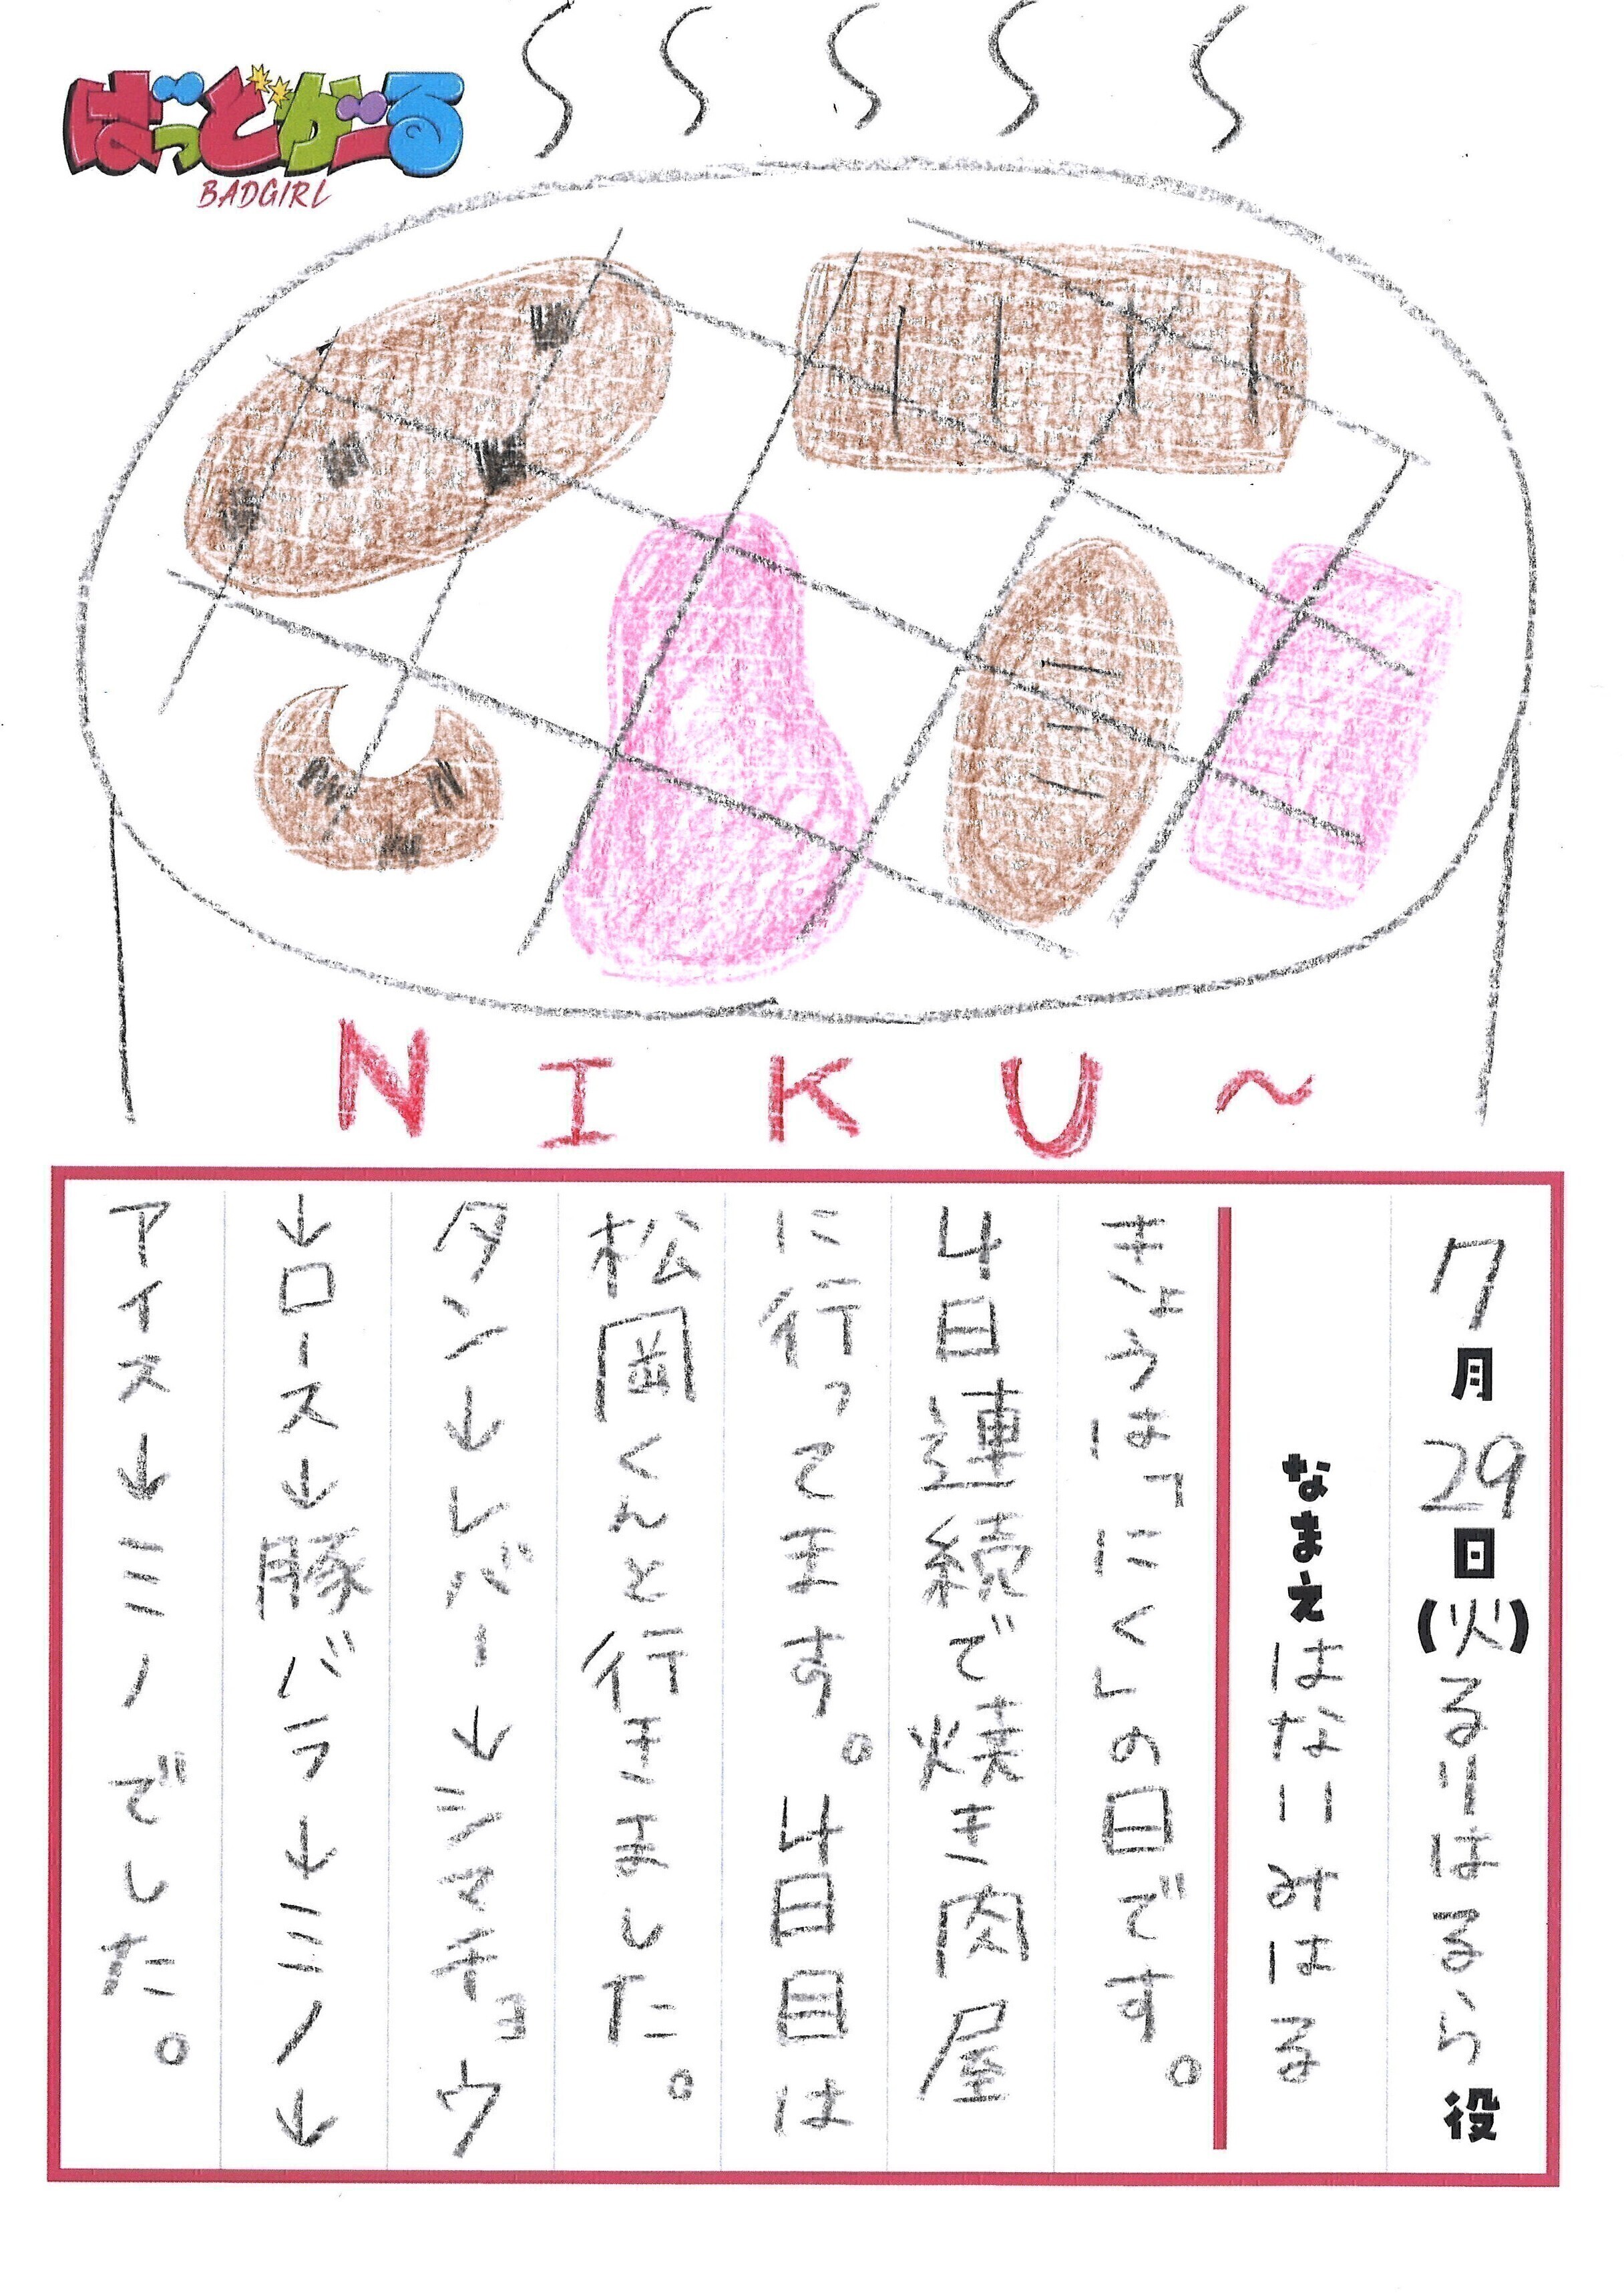 ばっどがーる
BADGIRL
NIKU～
7月29日(火)るりはるら役
なまえ はないみはる
きょうは「にく」の日です。
4日連続で焼き肉屋
に行ってます。4日目は
松岡くんと行きました。
タン→レバー→シマチョウ
→ロース→豚バラ→ミノ→
アイス→ミノでした。